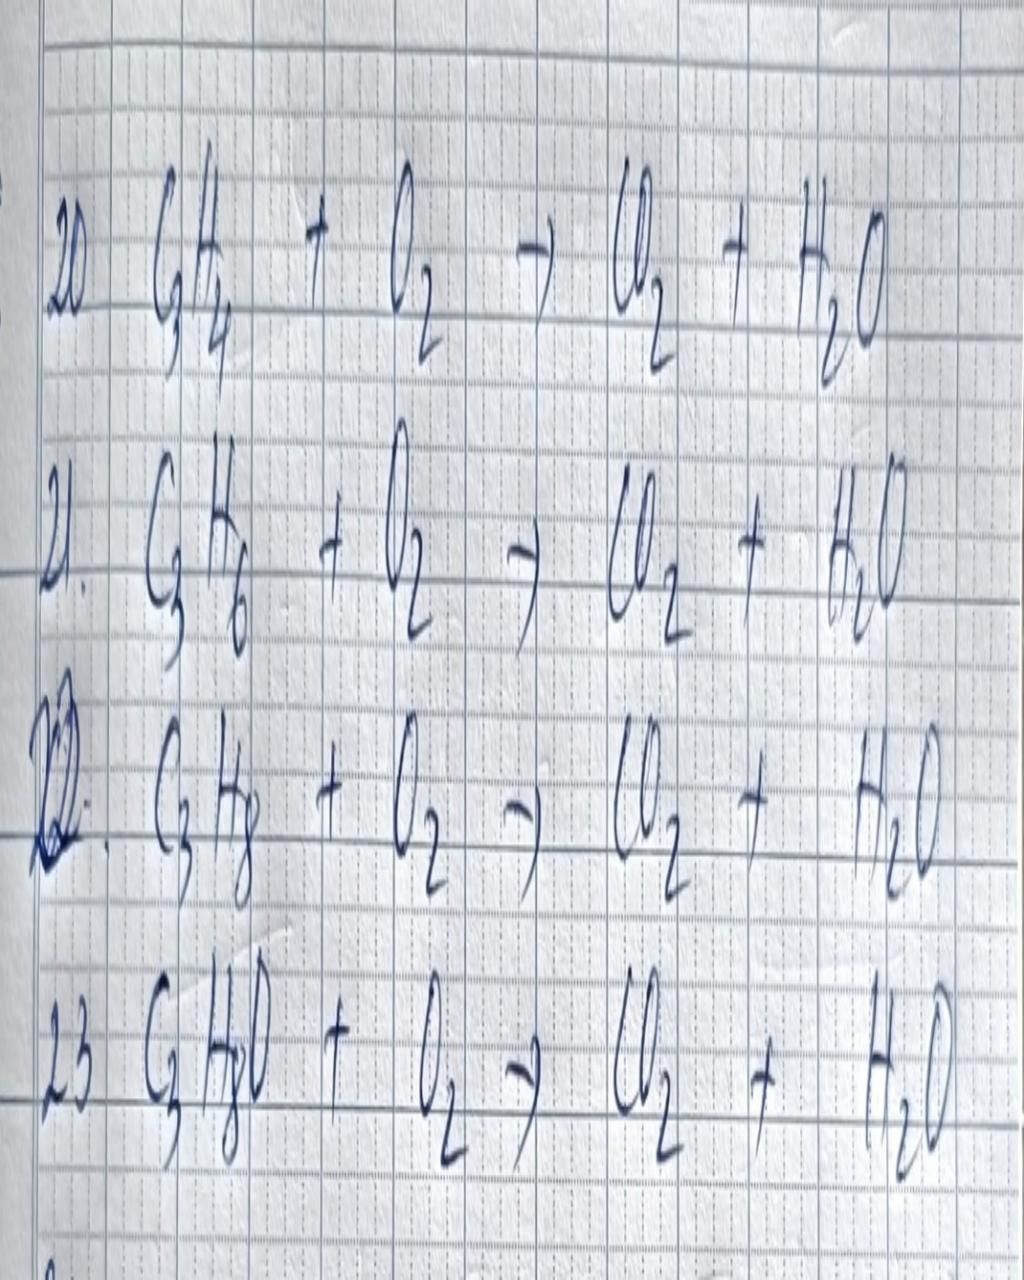 20 C₃H₄ + O₂ → CO₂ + H₂O
21. C₃H₆ + O₂ → CO₂ + H₂O
22. C₃H₈ + O₂ → CO₂ + H₂O
23 C₃H₈O + O₂ → CO₂ + H₂O